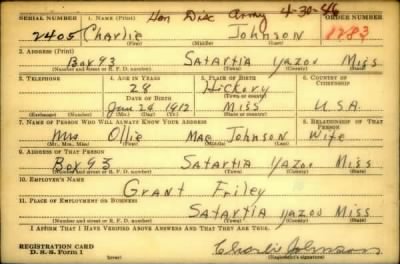 Hon Disc Army 4-30-46
SERIAL NUMBER 1. NAME (Print) ORDER NUMBER
2405 Charlie Johnson 1783
(First) (Middle) (Last)
2. ADDRESS (Print)
Box 93 Satartia Yazoo Miss
(Number and street or R. F. D. number) (Town) (County) (State)
3. TELEPHONE 4. AGE IN YEARS 5. PLACE OF BIRTH 6. COUNTRY OF CITIZENSHIP
28 Hickory
DATE OF BIRTH (Town or county)
Jun 24 1912 Miss U.S.A.
(Exchange) (Number) (Mo.) (Day) (Yr.) (State or country)
7. NAME OF PERSON WHO WILL ALWAYS KNOW YOUR ADDRESS 8. RELATIONSHIP OF THAT PERSON
Mrs Ollie Mae Johnson Wife
(Mr., Mrs., Miss) (First) (Middle) (Last)
9. ADDRESS OF THAT PERSON
Box 93 Satartia Yazoo Miss
(Number and street or R. F. D. number) (Town) (County) (State)
10. EMPLOYER'S NAME
Grant Friley
11. PLACE OF EMPLOYMENT OR BUSINESS
Satartia Yazoo Miss
(Number and street or R. F. D. number) (Town) (County) (State)
I AFFIRM THAT I HAVE VERIFIED ABOVE ANSWERS AND THAT THEY ARE TRUE.
REGISTRATION CARD
D. S. S. Form 1 Charlie Johnson
(Registrant's signature)